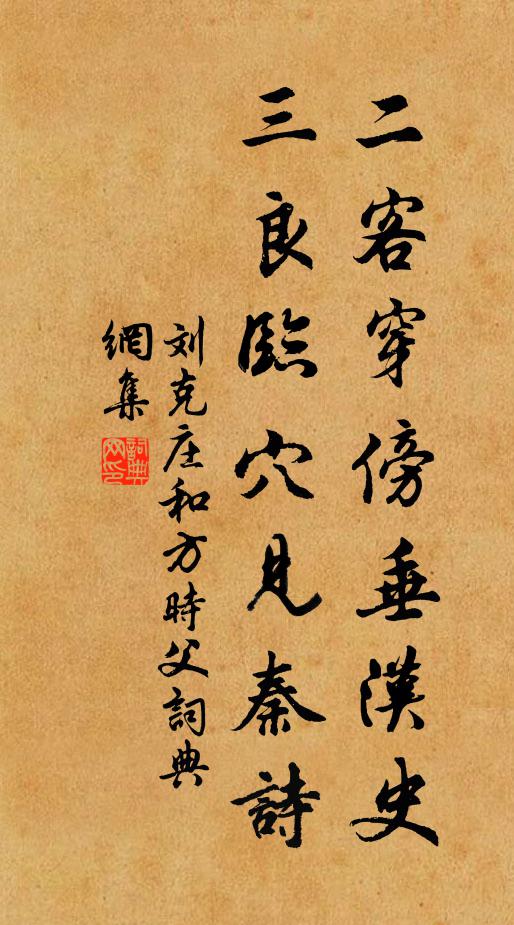 二客穿傍垂漢史
三良臨穴見秦詩
刘克庄和方時父詞典
網集
詞典網印